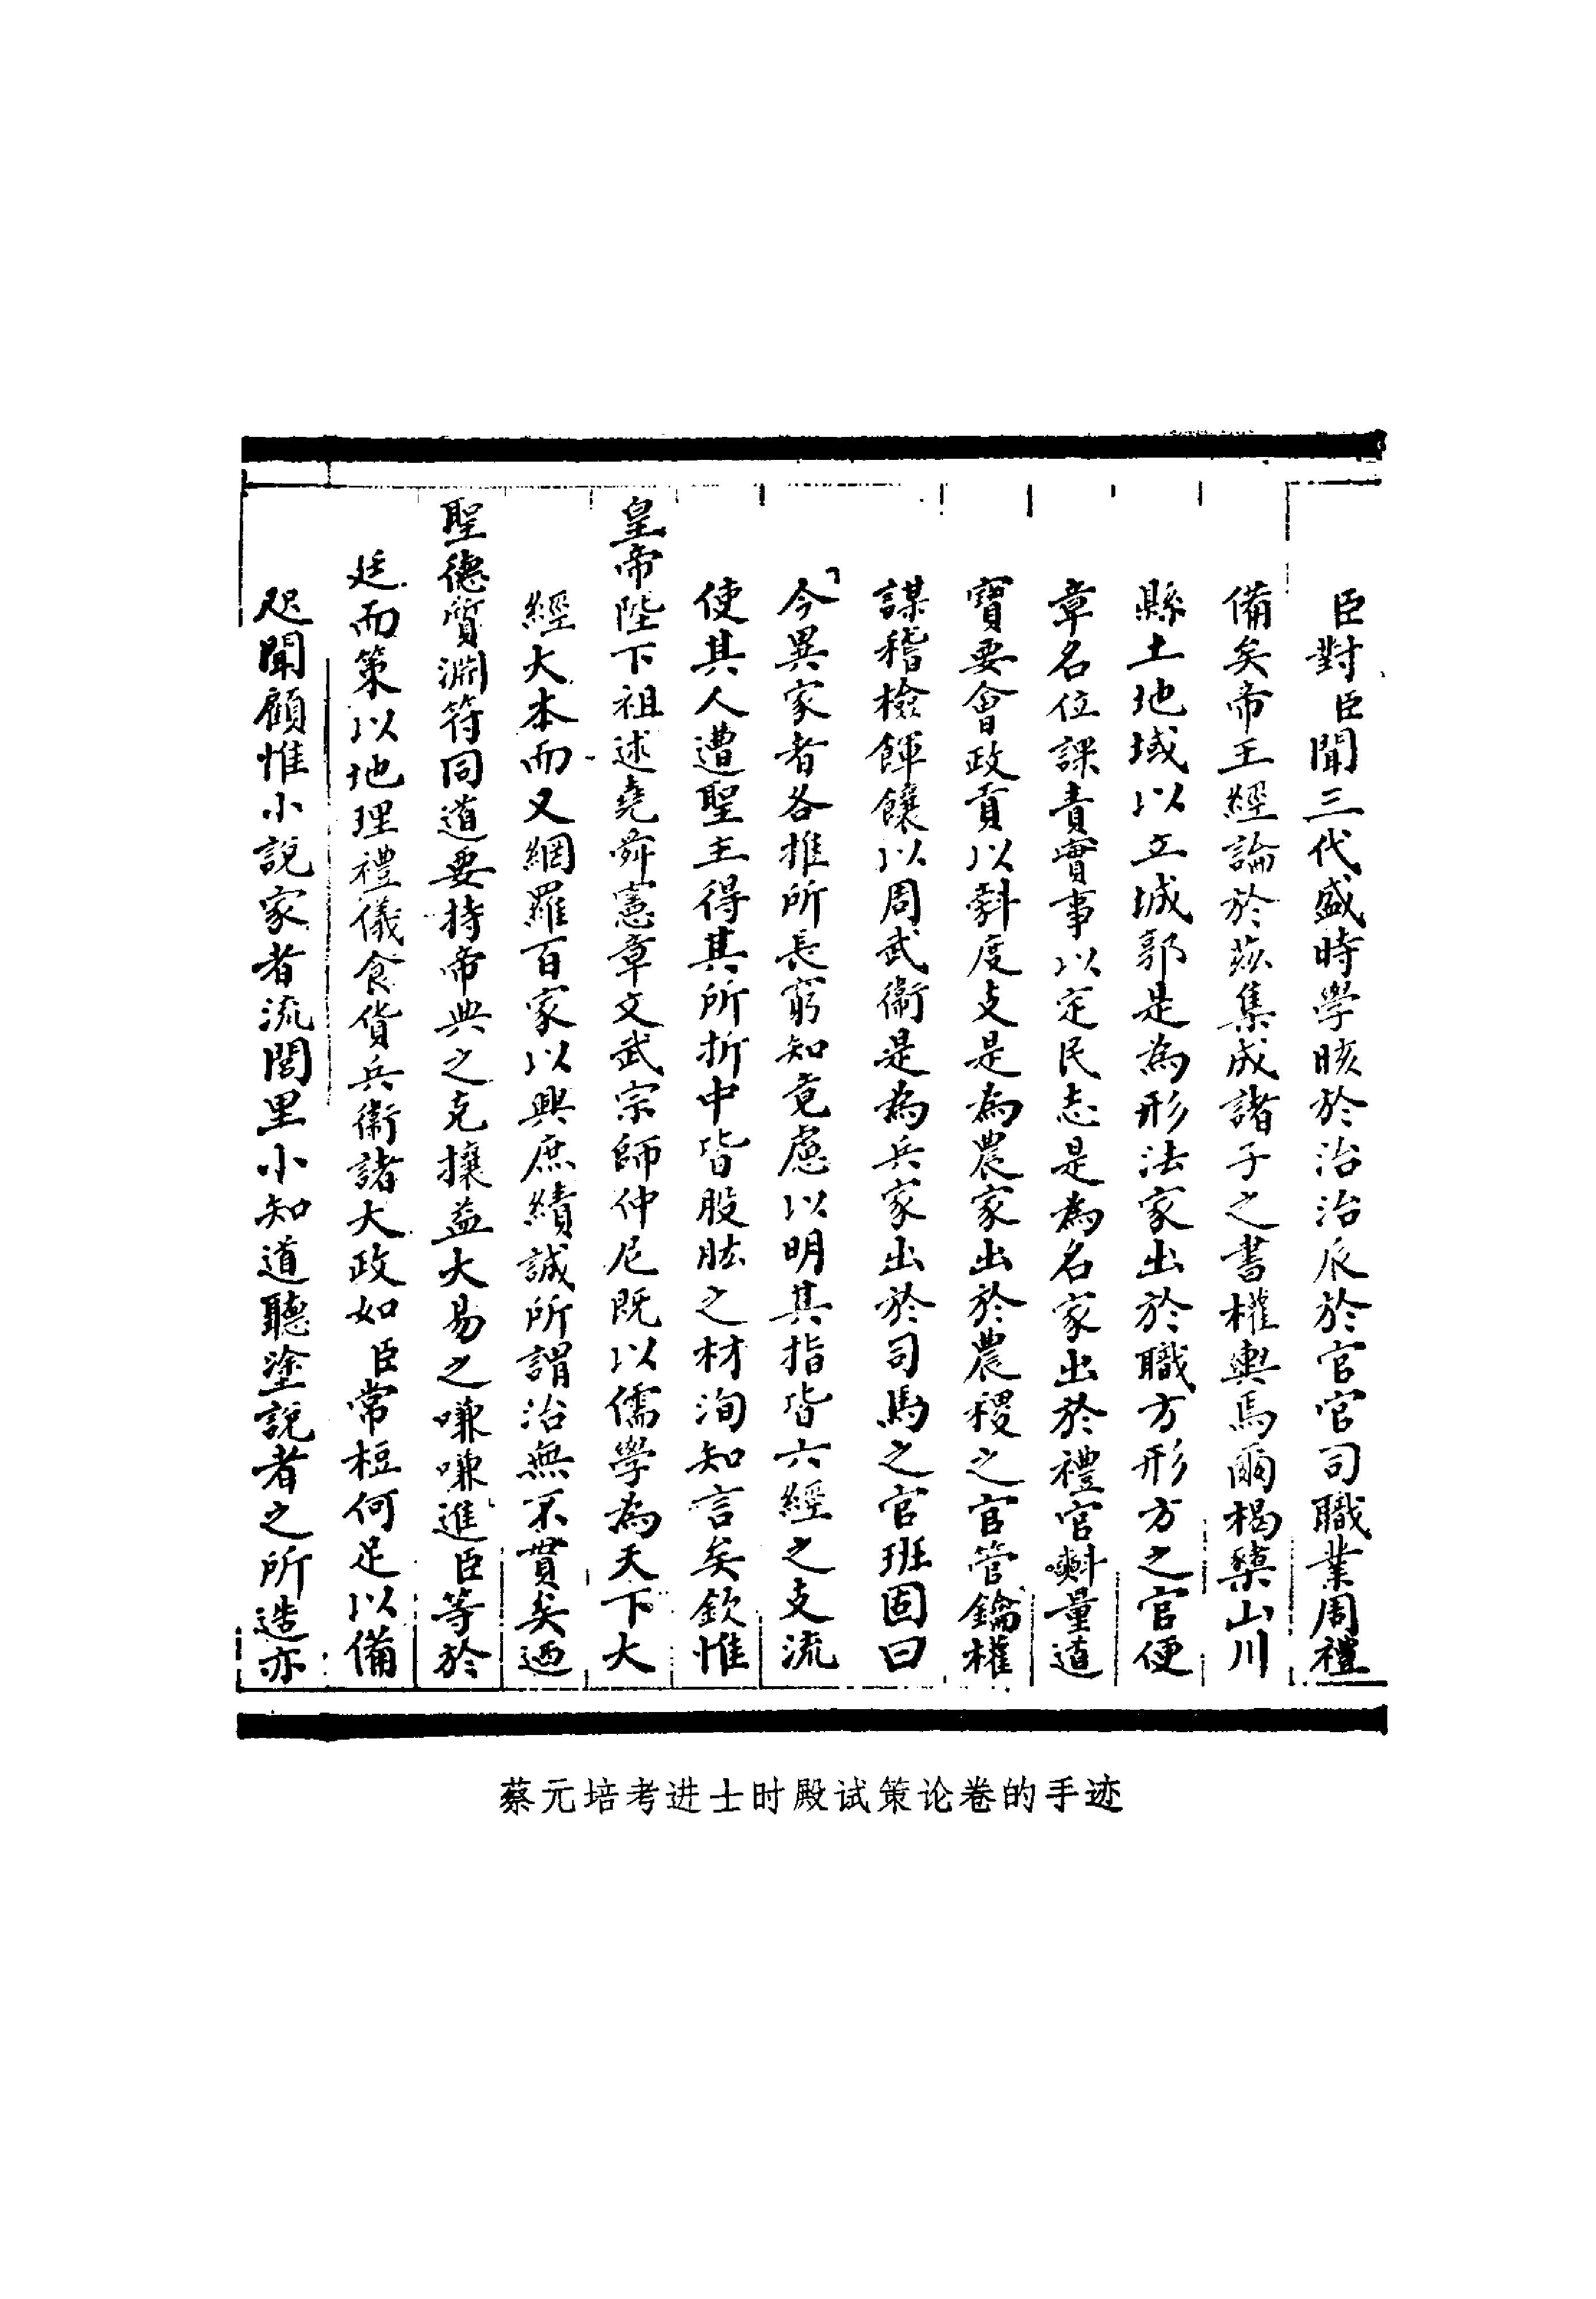 臣對臣聞三代盛時學晐於治治𠂢於官官司職業周禮
備矣帝王經論於茲集成諸子之書權輿焉爾楬橥山川
縣土地域以立城郭是為形法家出於職方形方之官便
章名位課責實事以定民志是為名家出於禮官㪺量道
寶要會政貢以斠度支是為農家出於農稷之官管鑰權
謀稽檢餫饟以周武衞是為兵家出於司馬之官班固曰
今異家者各推所長窮知究慮以明其指皆六經之支流
使其人遭聖主得其所折中皆股肱之材洵知言矣欽惟
皇帝陛下祖述堯舜憲章文武宗師仲尼既以儒學為天下大
經大本而又網羅百家以興庶績誠所謂治無不貫矣迺
聖德質淵符同道要持帝典之克攘益大易之嗛嗛進臣等於
廷而策以地理禮儀食貨兵衞諸大政如臣常梪何足以備
咫聞顧惟小說家者流閭里小知道聽塗說者之所造亦
蔡元培考进士时殿试策论卷的手迹